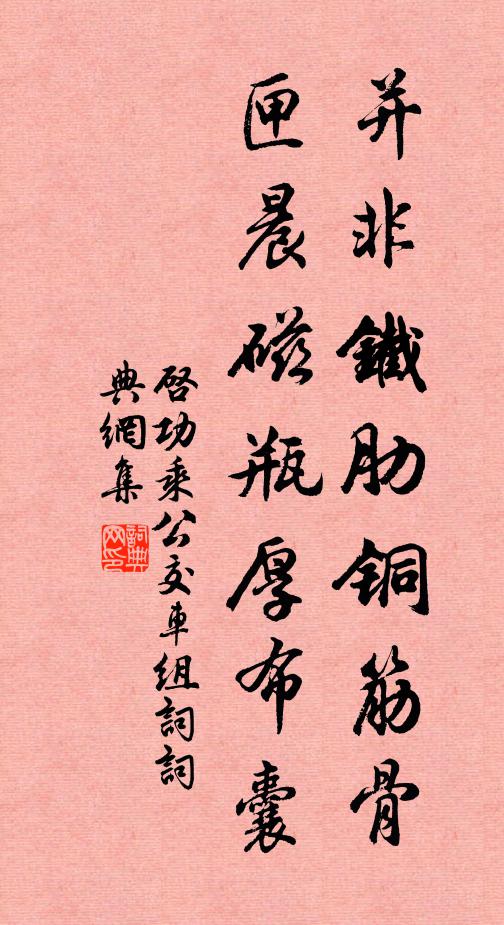 并非鐵肋銅筋骨
匣晨磁瓶厚布囊
啓功乘公交車組詞詞
典網集
詞典
网印